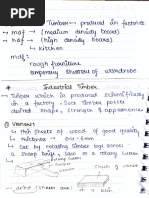 Timber → produced in factories
→ mdf → (medium density board)
→ Hdf → (high density board)
→ kitchen
mdf:
rough furniture
temporary structure of wardrobe
* Industrial Timber
→ Timber which is produced scientifically
in a factory. Such timber posses
desired shape, appearance, strength, etc.
① Veneers
→ Thin sheets of wood of good quality
→ thickness → 0.4 - 6mm
→ Cut by rotating timber logs across
a sharp knife, saw or a rotary cutter
→ dried (sheets are) in a kiln